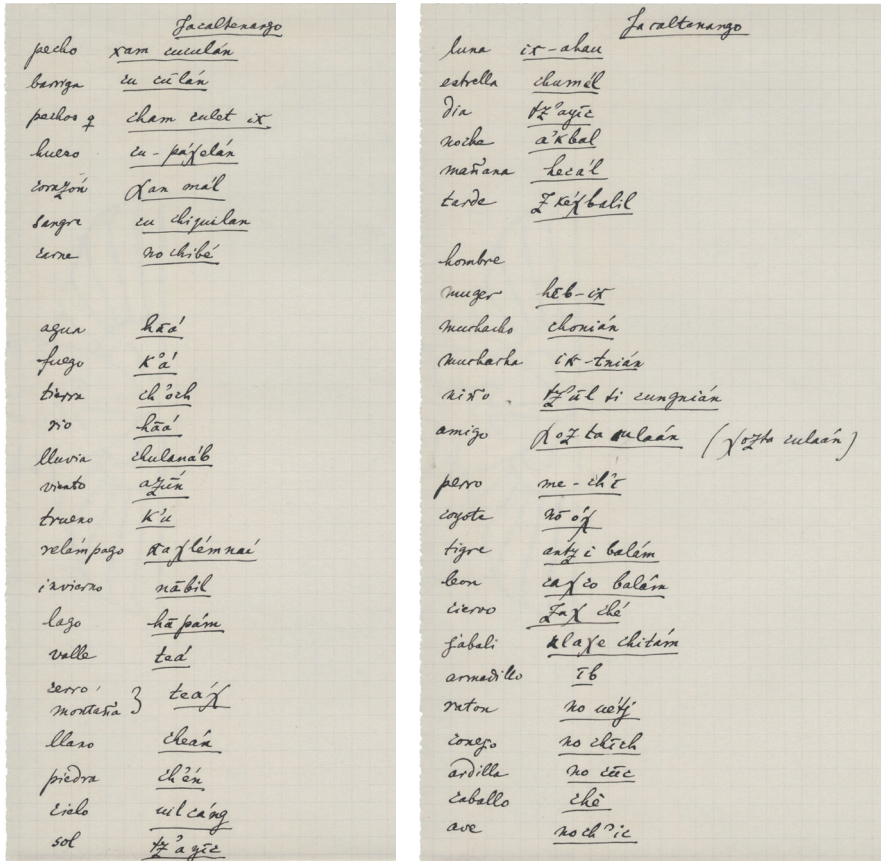 Jacaltenango
pecho xam cuculán
barriga cu cūlán
pechos ♀ cham culet ix
hueso cu-páχelán
corazón χan mál
sangre cu chiquilan
carne no chibé
agua hāá
fuego K'á
tierra ch'och
rio hāá
lluvia chulanáb
viento azūn
trueno K'ú
relámpago xaχlémnaí
invierno nābil
lago hā pám
valle teá
cerro,
montaña } teáχ
llano cheán
piedra ch'én
cielo uilcáng
sol tz'ayic
Jacaltenango
luna ix-ahau
estrella chumél
dia tz'ayic
noche a'Kbal
mañana hecál
tarde ZKéχbalil
hombre
muger hēb-ix
muchacho chonián
muchacha ix-tnián
niño tzūl ti cungnián
amigo χozta culaán (χozta culaán)
perro me-ch'i
coyote nō óχ
tigre antz i balám
leon caχco balám
ciervo Zaχ ché
jabali χlaχe chitám
armadillo īb
raton no uétj
conejo no chich
ardilla no cūc
caballo chē
ave noch'ic